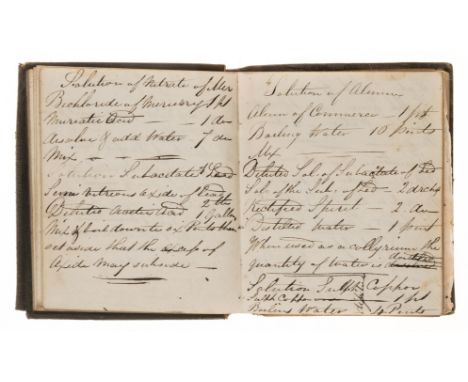 Solution of Nitrate of Mer
Bichloride of Mercury 1 pt
Mureatic Acid — 1 dr
disolve & add Water 7 dr
Mix
Solution Subacetate of Lead
Semivitreous oxide of Lead
2 lb
Distilled Acid 1 Gallon
Mix & boil down to six Pints then
set aside that the excess of
Oxide may subside
Solution of Alumn
Alum of Commerce — 1 pt
Boiling Water 10 Pints
Mix
Diluted Sol. of Subacetate of Led
Sol. of the Sub. of Led — 2 drchs
Rectified Spirit 2 drs
Distilled Water — 1 pint
When used as a collyrium the
quantity of Water is
Solution Sulph Copper
Sulph Copper 1 pt
Boiling Water 4 Pints